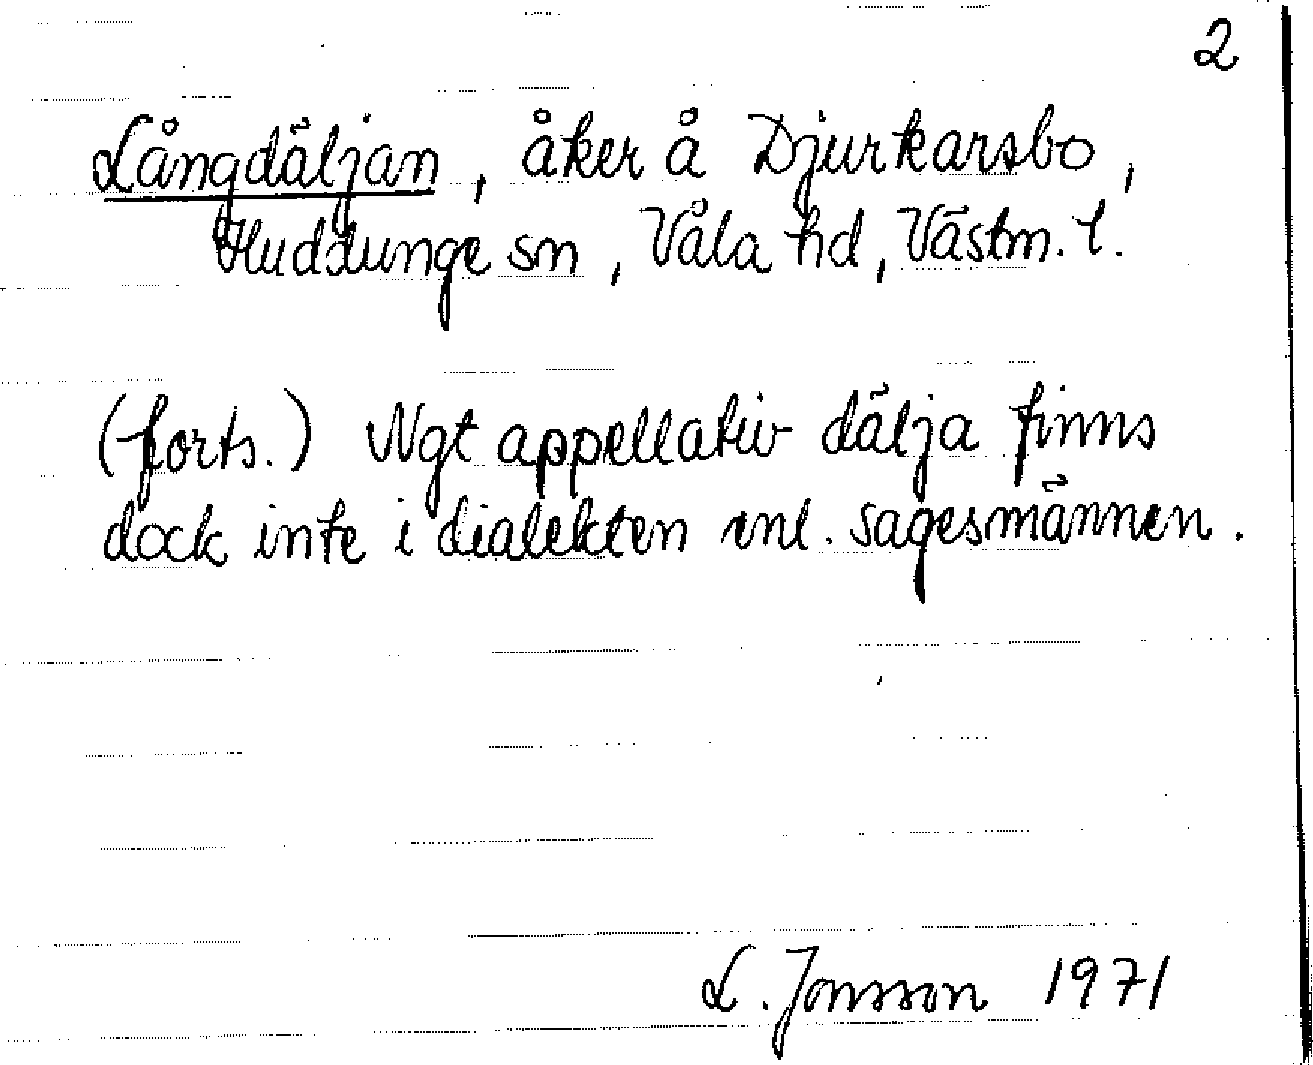 2
Långdäljan, åker å Djurkarsbo,
Huddunge sn, Våla hd, Västm. l.
(forts.) Ngt appellativ dälja finns
dock inte i dialekten enl. sagesmännen.
L. Jonsson 1971